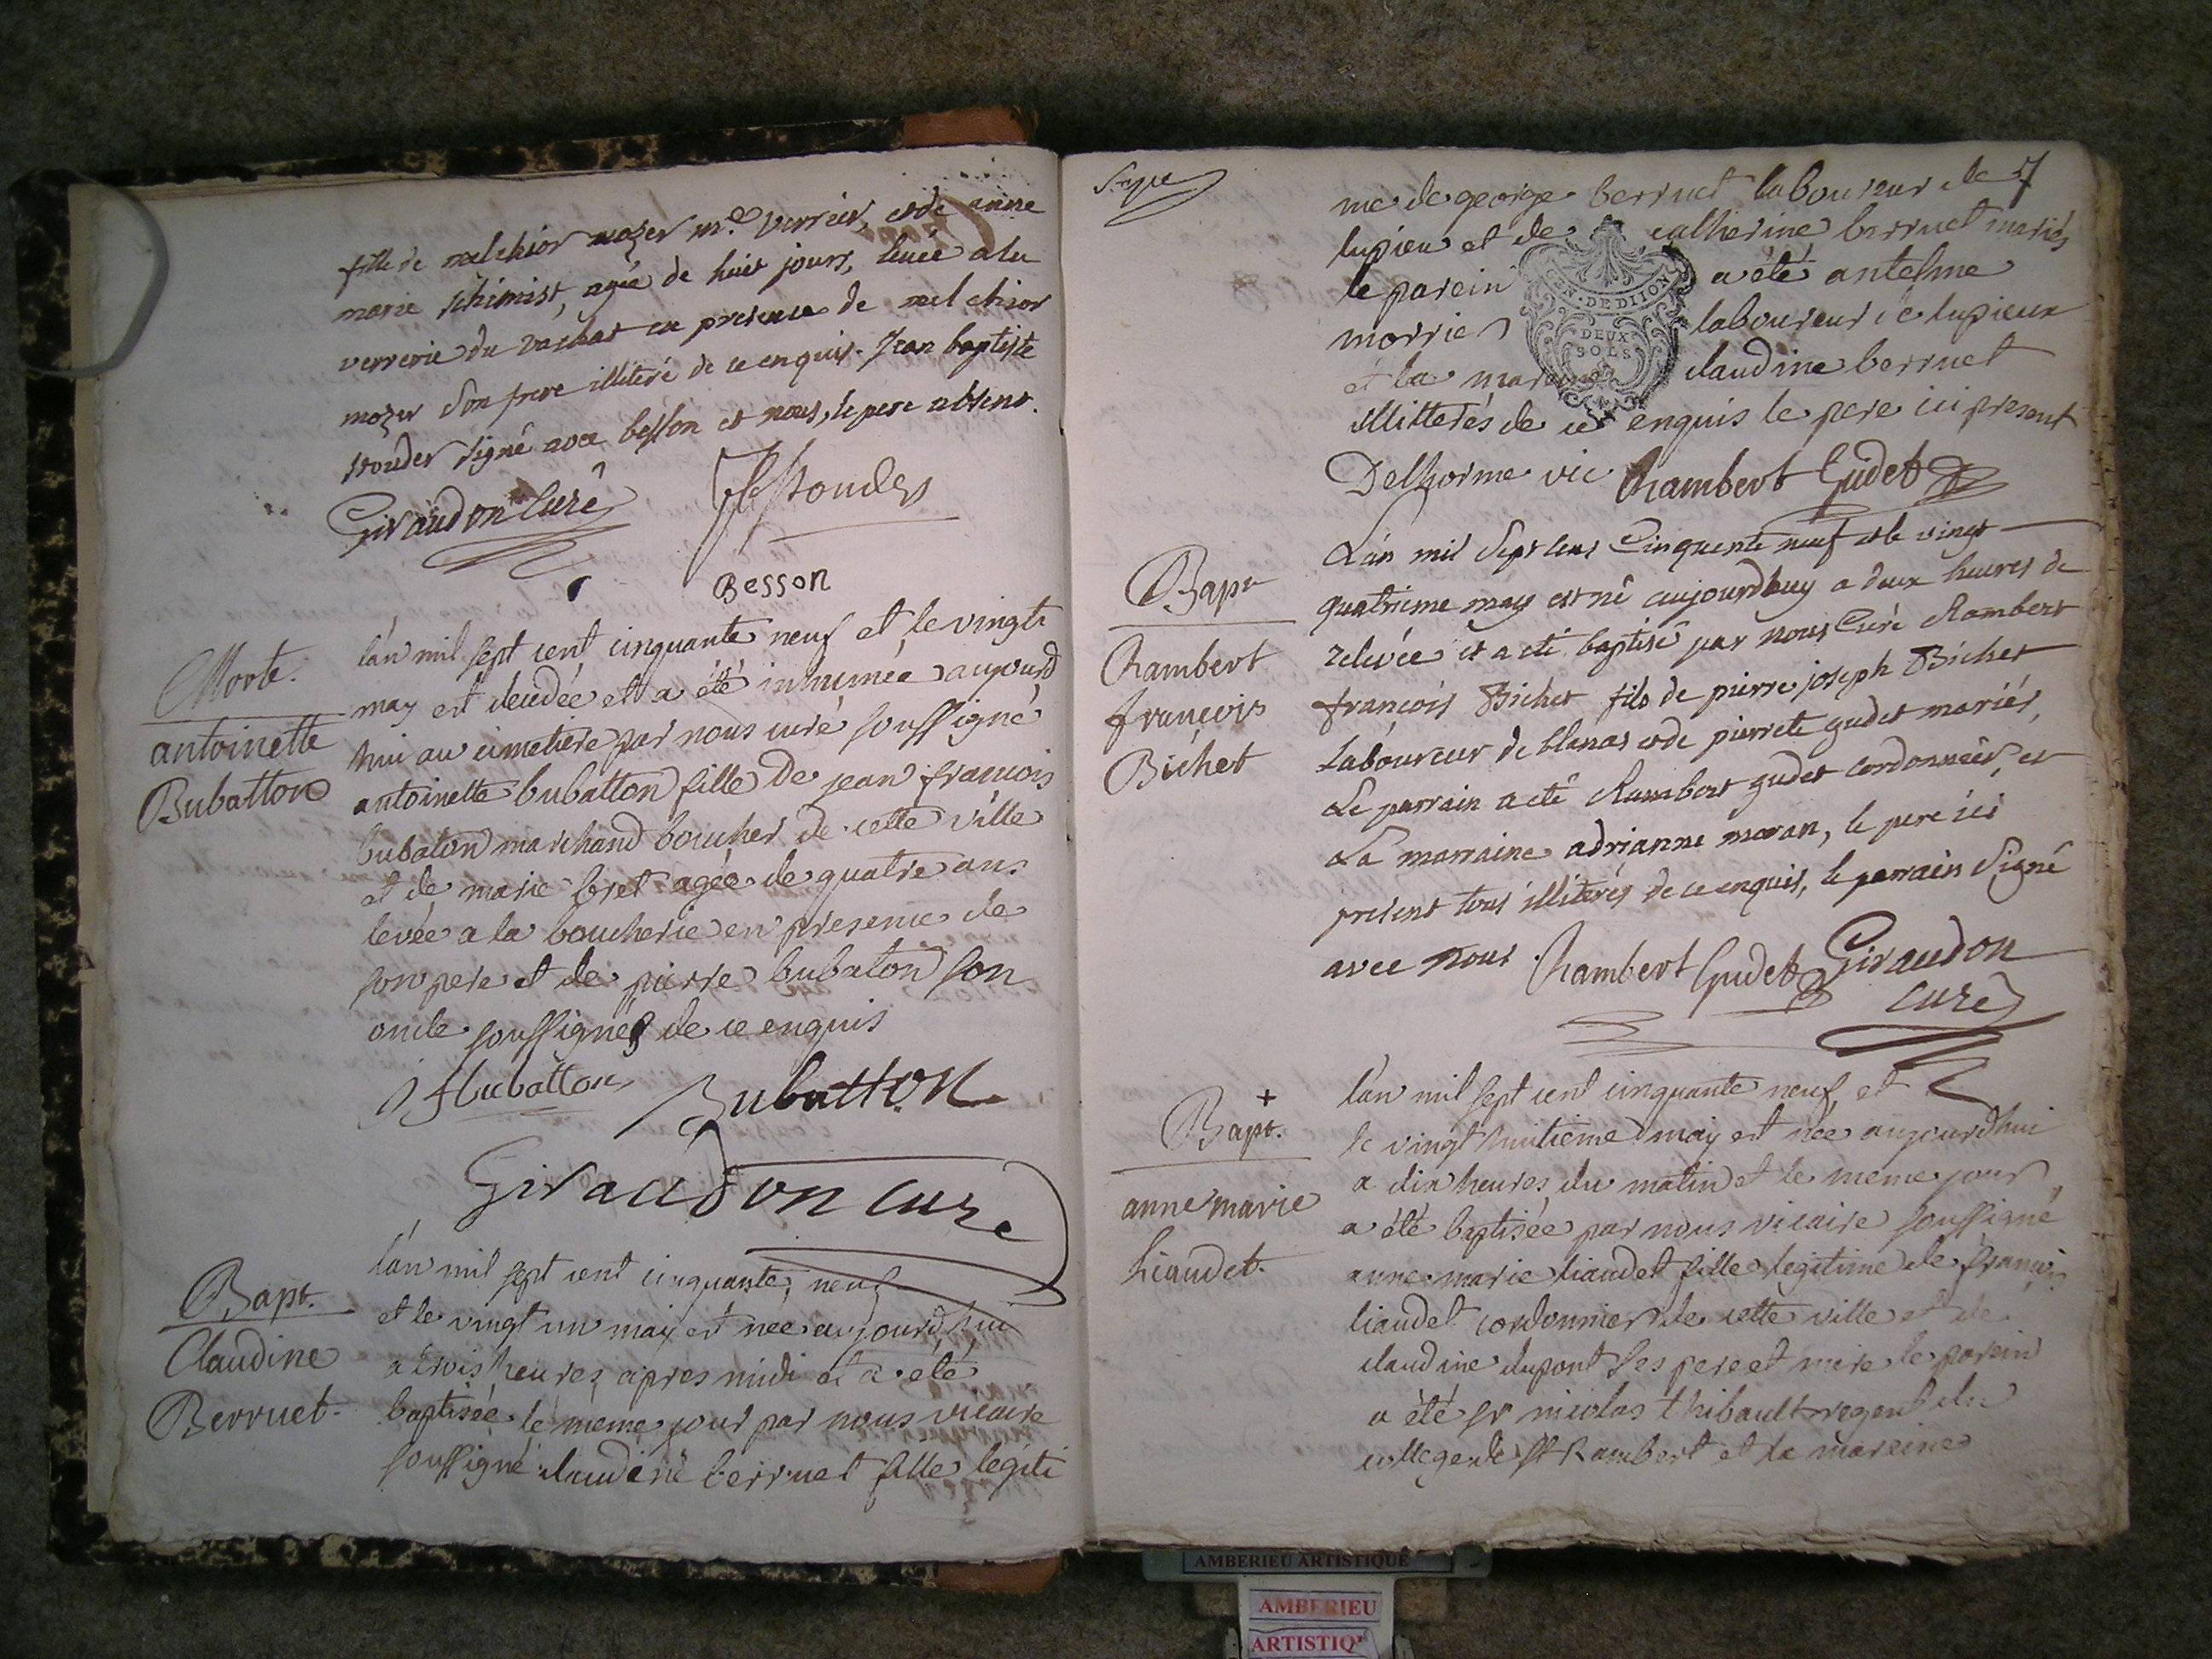 fille de melchior mozer m.e verrier, et de anne
marie schimist, agée de huit jours, levée a la
verrerie du vachat en presence de melchior
mozer son frere illiteré de ce enquis. Jean baptiste
stouder signé avec besson et nous, le pere absent.
Giraudon Curé
Stouder
Besson
Morte.
antoinette
Bubatton
lan mil sept cent cinquante neuf et le vingti
may est decedée et a été inhumée aujourd
hui au cimetiere par nous curé soussigné
antoinette bubatton fille de jean francois
bubaton marchand boucher de cette ville
et de marie bret agée de quatre ans
levée a la boucherie en presence de
son pere et de pierre bubaton son
oncle soussignés de ce enquis
J f bubatton
Bubatton
Giraudon curé
Bapt.
Claudine
Berruet.
lan mil sept cent cinquante neuf
et le vingt un may est née aujourdhui
a trois heures apres midi et a été
baptisée le meme jour par nous vicaire
soussigné claudine berruet fille legiti
Sept
7
me de george berruet laboureur de
lupieu et de catherine berruet mariés
le parein a été antelme
morrier laboureur de lupieux
et la mareine claudine berruet
illitterés de ce enquis le pere ici present
GEN. DE DIJON
DEUX
SOLS
Delhorme vic Rambert Gudet
Bapt
Rambert
francois
Bichet
Lan mil sept cens Cinquente neuf et le vingt
quatrieme may est né aujourdhuy a deux heures de
relevée et a eté baptisé par nous Curé Rambert
françois Bichet fils de pierre joseph Bichet
Laboureur de blanas et de pierrete gudet mariés,
Le parrain a eté Rambert gudet cordonnier, et
La marraine adrianne moran, le pere ici
present tous illiterés de ce enquis, le parrain signé
avec nous. Rambert Gudet Giraudon
curé
+
Bapt.
anne marie
liaudet.
lan mil sept cent cinquante neuf et
le vingt huitieme may est née aujourdhui
a dix heures du matin et le meme jour
a été baptisée par nous vicaire soussigné
anne marie liaudet fille legitime de francois
liaudet cordonnier de cette ville et de
claudine dupont ses pere et mere le parein
a été sr nicolas thibault regent du
college de St Rambert et la mareine
AMBERIEU ARTISTIQUE
AMBERIEU
ARTISTIQ